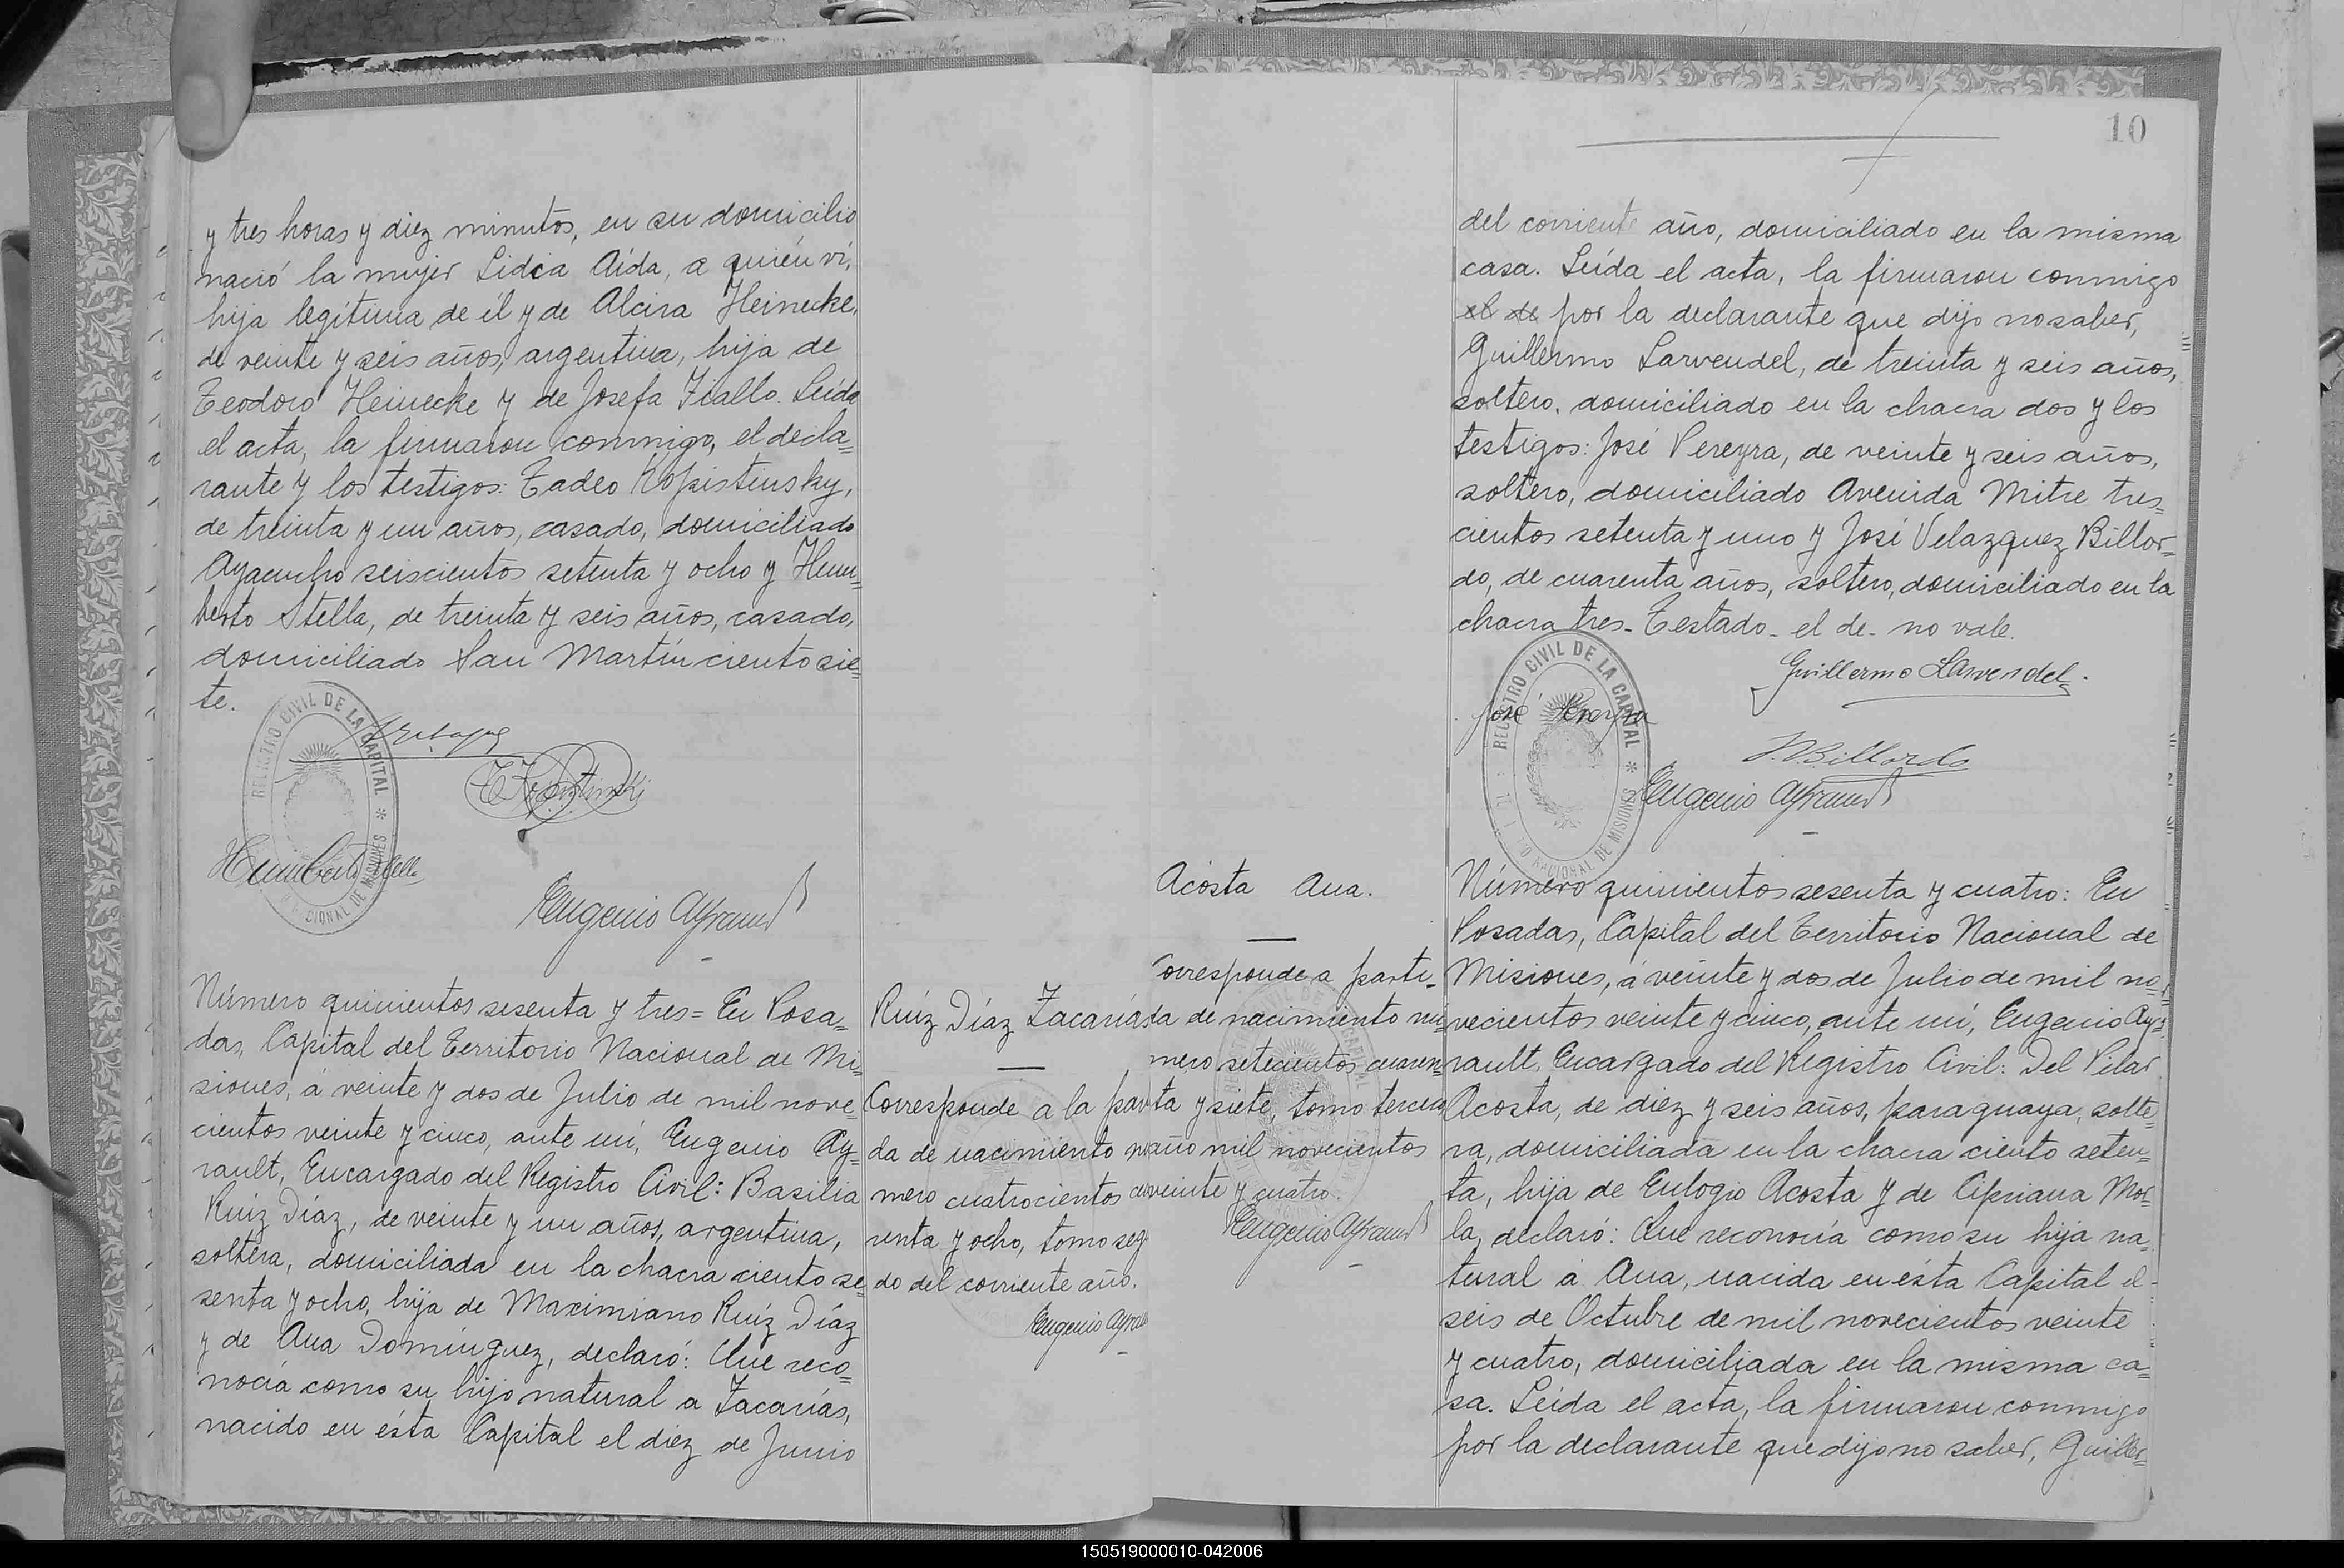 y tres horas y diez minutos, en su domicilio
nació la mujer Lidia Aída, a quién ví,
hija legítima de él y de Alcira Heinecke,
de veinte y seis años, argentina, hija de
Teodoro Heinecke y de Josefa Fiallo. Leída
el acta, la firmaron conmigo, el decla=
rante y los testigos: Tadeo Kopistinsky,
de treinta y un años, casado, domiciliado
Ayacucho seiscientos setenta y ocho y Hum=
berto Stella, de treinta y seis años, casado,
domiciliado San Martín ciento sie=
te.
REGISTRO CIVIL DE LA CAPITAL * NACIONAL DE MISIONES
Humberto Stella
Eugenio Ayrault
Número quinientos sesenta y tres= En Posa=
das, Capital del Territorio Nacional de Mi=
siones, á veinte y dos de Julio de mil nove
cientos veinte y cinco, ante mí, Eugenio Ay=
rault, Encargado del Registro Civil: Basilia
Ruíz Díaz, de veinte y un años, argentina,
soltera, domiciliada en la chacra ciento se
senta y ocho, hija de Maximiano Ruíz Díaz
y de Ana Domínguez, declaró: Que reco=
nocía como su hijo natural a Zacarías,
nacido en ésta Capital el diez de Junio
Ruíz Díaz Zacarías
Corresponde a la par
da de nacimiento
mero cuatrocientos
renta y ocho, tomo seg
do del corriente año.
Eugenio Ayrau
10
del corriente año, domiciliado en la misma
casa. Leída el acta, la firmaron conmigo
el de por la declarante que dijo no saber,
Guillermo Larvendel, de treinta y seis años,
soltero, domiciliado en la chacra dos y los
testigos: José Pereyra, de veinte y seis años,
soltero, domiciliado Avenida Mitre tres=
cientos setenta y uno y José Velazquez Billor=
do, de cuarenta años, soltero, domiciliado en la
chacra tres_ Testado_ el de_ no vale.
Guillermo Larvendel
José Pereyra
J.V.Billordo
REGISTRO CIVIL DE LA CAPITAL * NACIONAL DE MISIONES
Eugenio Ayrault
Acosta Ana.
orresponde a parti_
da de nacimiento nú=
mero setecientos cuaren=
ta y siete, tomo tercero
año mil novecientos
veinte y cuatro.
Eugenio Ayrault
Número quinientos sesenta y cuatro: En
Posadas, Capital del Territorio Nacional de
Misiones, á veinte y dos de Julio de mil no=
vecientos veinte y cinco, ante mí, Eugenio Ay=
rault, Encargado del Registro Civil: Del Pilar
Acosta, de diez y seis años, paraguaya, solte=
ra, domiciliada en la chacra ciento seten=
ta, hija de Eulogio Acosta y de Cipriana Mor=
la, declaró: Que reconocía como su hija na=
tural á Ana, nacida en ésta Capital el
seis de Octubre de mil novecientos veinte
y cuatro, domiciliada en la misma ca=
sa. Leída el acta, la firmaron conmigo
por la declarante que dijo no saber, Guiller=
150519000010-042006